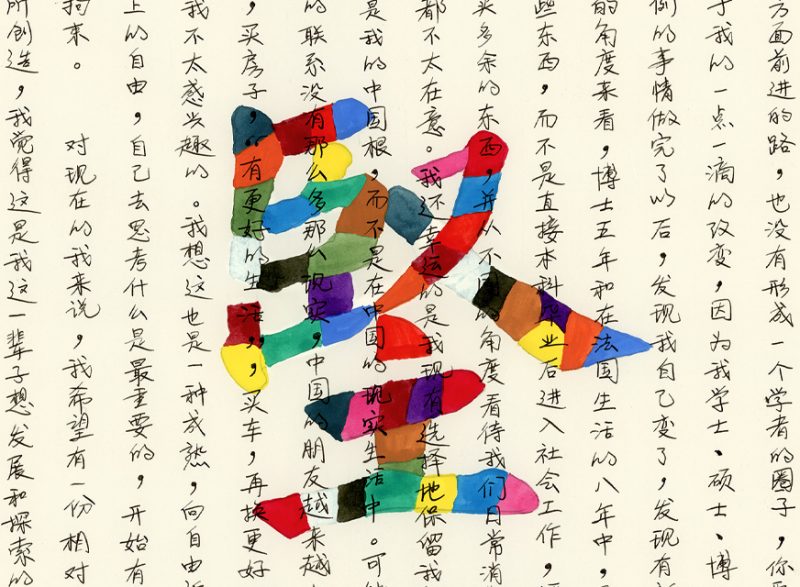 方面前进的路，也没有形成一个学者的圈子，你
于我的一点一滴的改变，因为我学士、硕士、博
例的事情做完了以后，发现我自己变了，发现有
的角度来看，博士五年和在法国生活的八年中，
些东西，而不是直接本科毕业后进入社会工作，
买多余的东西，并从不同的角度看待我们日常消
都不太在意。我还幸运的是我现有选择地保留我
是我的中国根，而不是在中国的现实生活中。可
的联系没有那么多那么现实，中国的朋友越来越
，买房子，有更好的生活，，买车，再换更好
我不太感兴趣的。我想这也是一种成熟，向自由
上的自由，自己去思考什么是最重要的，开始有
拘束。 对现在的我来说，我希望有一份相对
所创造，我觉得这是我这一辈子想发展和探索的
堅